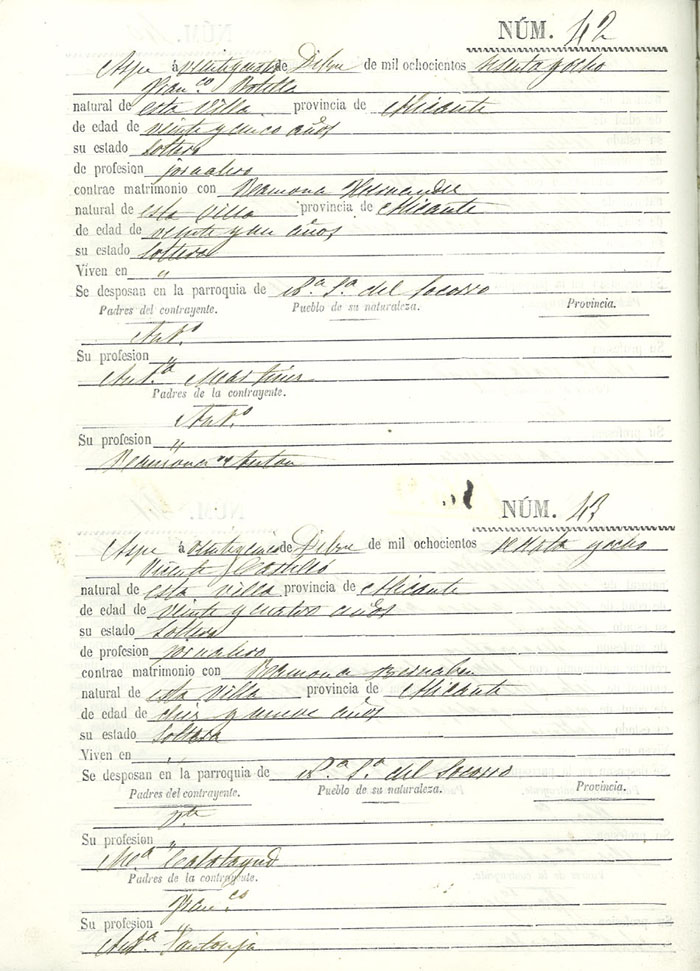 NÚM. 42
Aspe á veinteycinco de Dibre de mil ochocientos sesenta y ocho
Franco Botella
natural de esta Villa provincia de Alicante
de edad de veinte y cinco años
su estado soltero
de profesion jornalero
contrae matrimonio con Ramona Hernandez
natural de esta Villa provincia de Alicante
de edad de veinte y un años
su estado soltera
Viven en "
Se desposan en la parroquia de N.a S.a del Socorro
Padres del contrayente. Pueblo de su naturaleza. Provincia.
Anto
Su profesion "
Anta Martinez
Padres de la contrayente.
Anto
Su profesion "
Ramona Anton
NÚM. 43
Aspe á de Dibre de mil ochocientos sesenta y ocho
Vicente Castelló
natural de esta Villa provincia de Alicante
de edad de veinte y cuatro años
su estado soltero
de profesion jornalero
contrae matrimonio con Ramona Bernabeu
natural de esta Villa provincia de Alicante
de edad de diez y nueve años
su estado soltera
Viven en "
Se desposan en la parroquia de N.a S.a del Socorro
Padres del contrayente. Pueblo de su naturaleza. Provincia.
Vte
Su profesion "
Ma Calatayud
Padres de la contrayente.
Franco
Su profesion "
Anta Pantoja